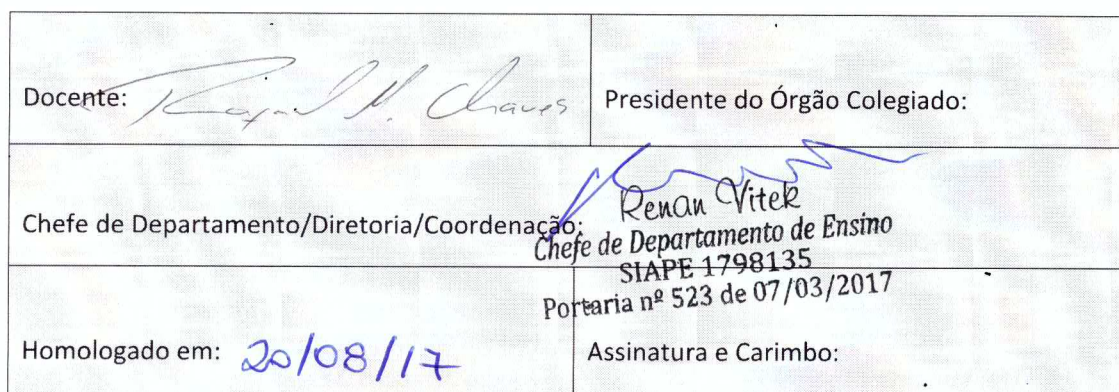 Docente: Rafael M. Chaves
Presidente do Órgão Colegiado:
Chefe de Departamento/Diretoria/Coordenação:
Renan Vitek
Chefe de Departamento de Ensino
SIAPE 1798135
Portaria nº 523 de 07/03/2017
Homologado em: 20/08/17
Assinatura e Carimbo: